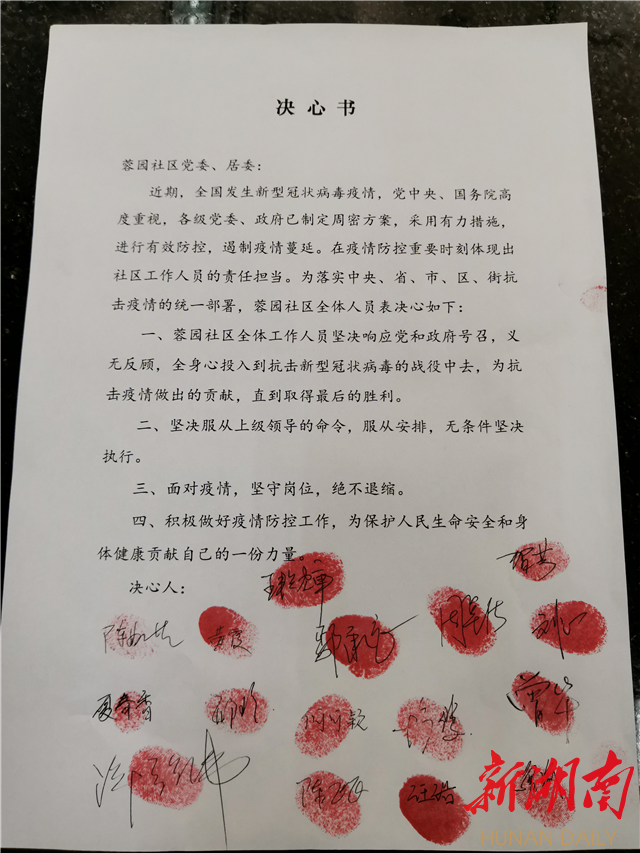 决心书
蓉园社区党委、居委：
近期，全国发生新型冠状病毒疫情，党中央、国务院高
度重视，各级党委、政府已制定周密方案，采用有力措施，
进行有效防控，遏制疫情蔓延。在疫情防控重要时刻体现出
社区工作人员的责任担当。为落实中央、省、市、区、街抗
击疫情的统一部署，蓉园社区全体人员表决心如下：
一、蓉园社区全体工作人员坚决响应党和政府号召，义
无反顾，全身心投入到抗击新型冠状病毒的战役中去，为抗
击疫情做出的贡献，直到取得最后的胜利。
二、坚决服从上级领导的命令，服从安排，无条件坚决
执行。
三、面对疫情，坚守岗位，绝不退缩。
四、积极做好疫情防控工作，为保护人民生命安全和身
体健康贡献自己的一份力量。
决心人：
新湖南
HUNAN DAILY